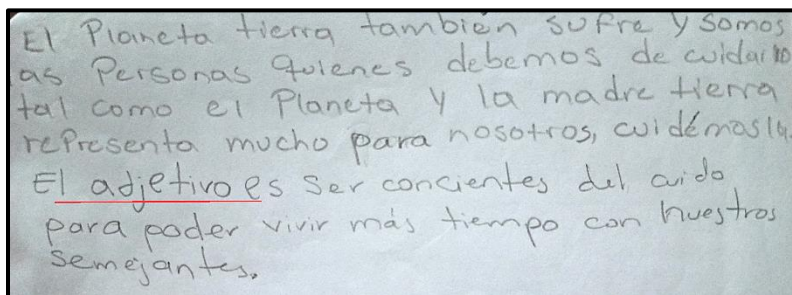 El Planeta tierra también sufre y somos
as Personas quienes debemos de cuidarlo
tal como el Planeta y la madre tierra
representa mucho para nosotros, cuidémosla.
El adjetivo es ser concientes del cuido
para poder vivir más tiempo con nuestros
semejantes.